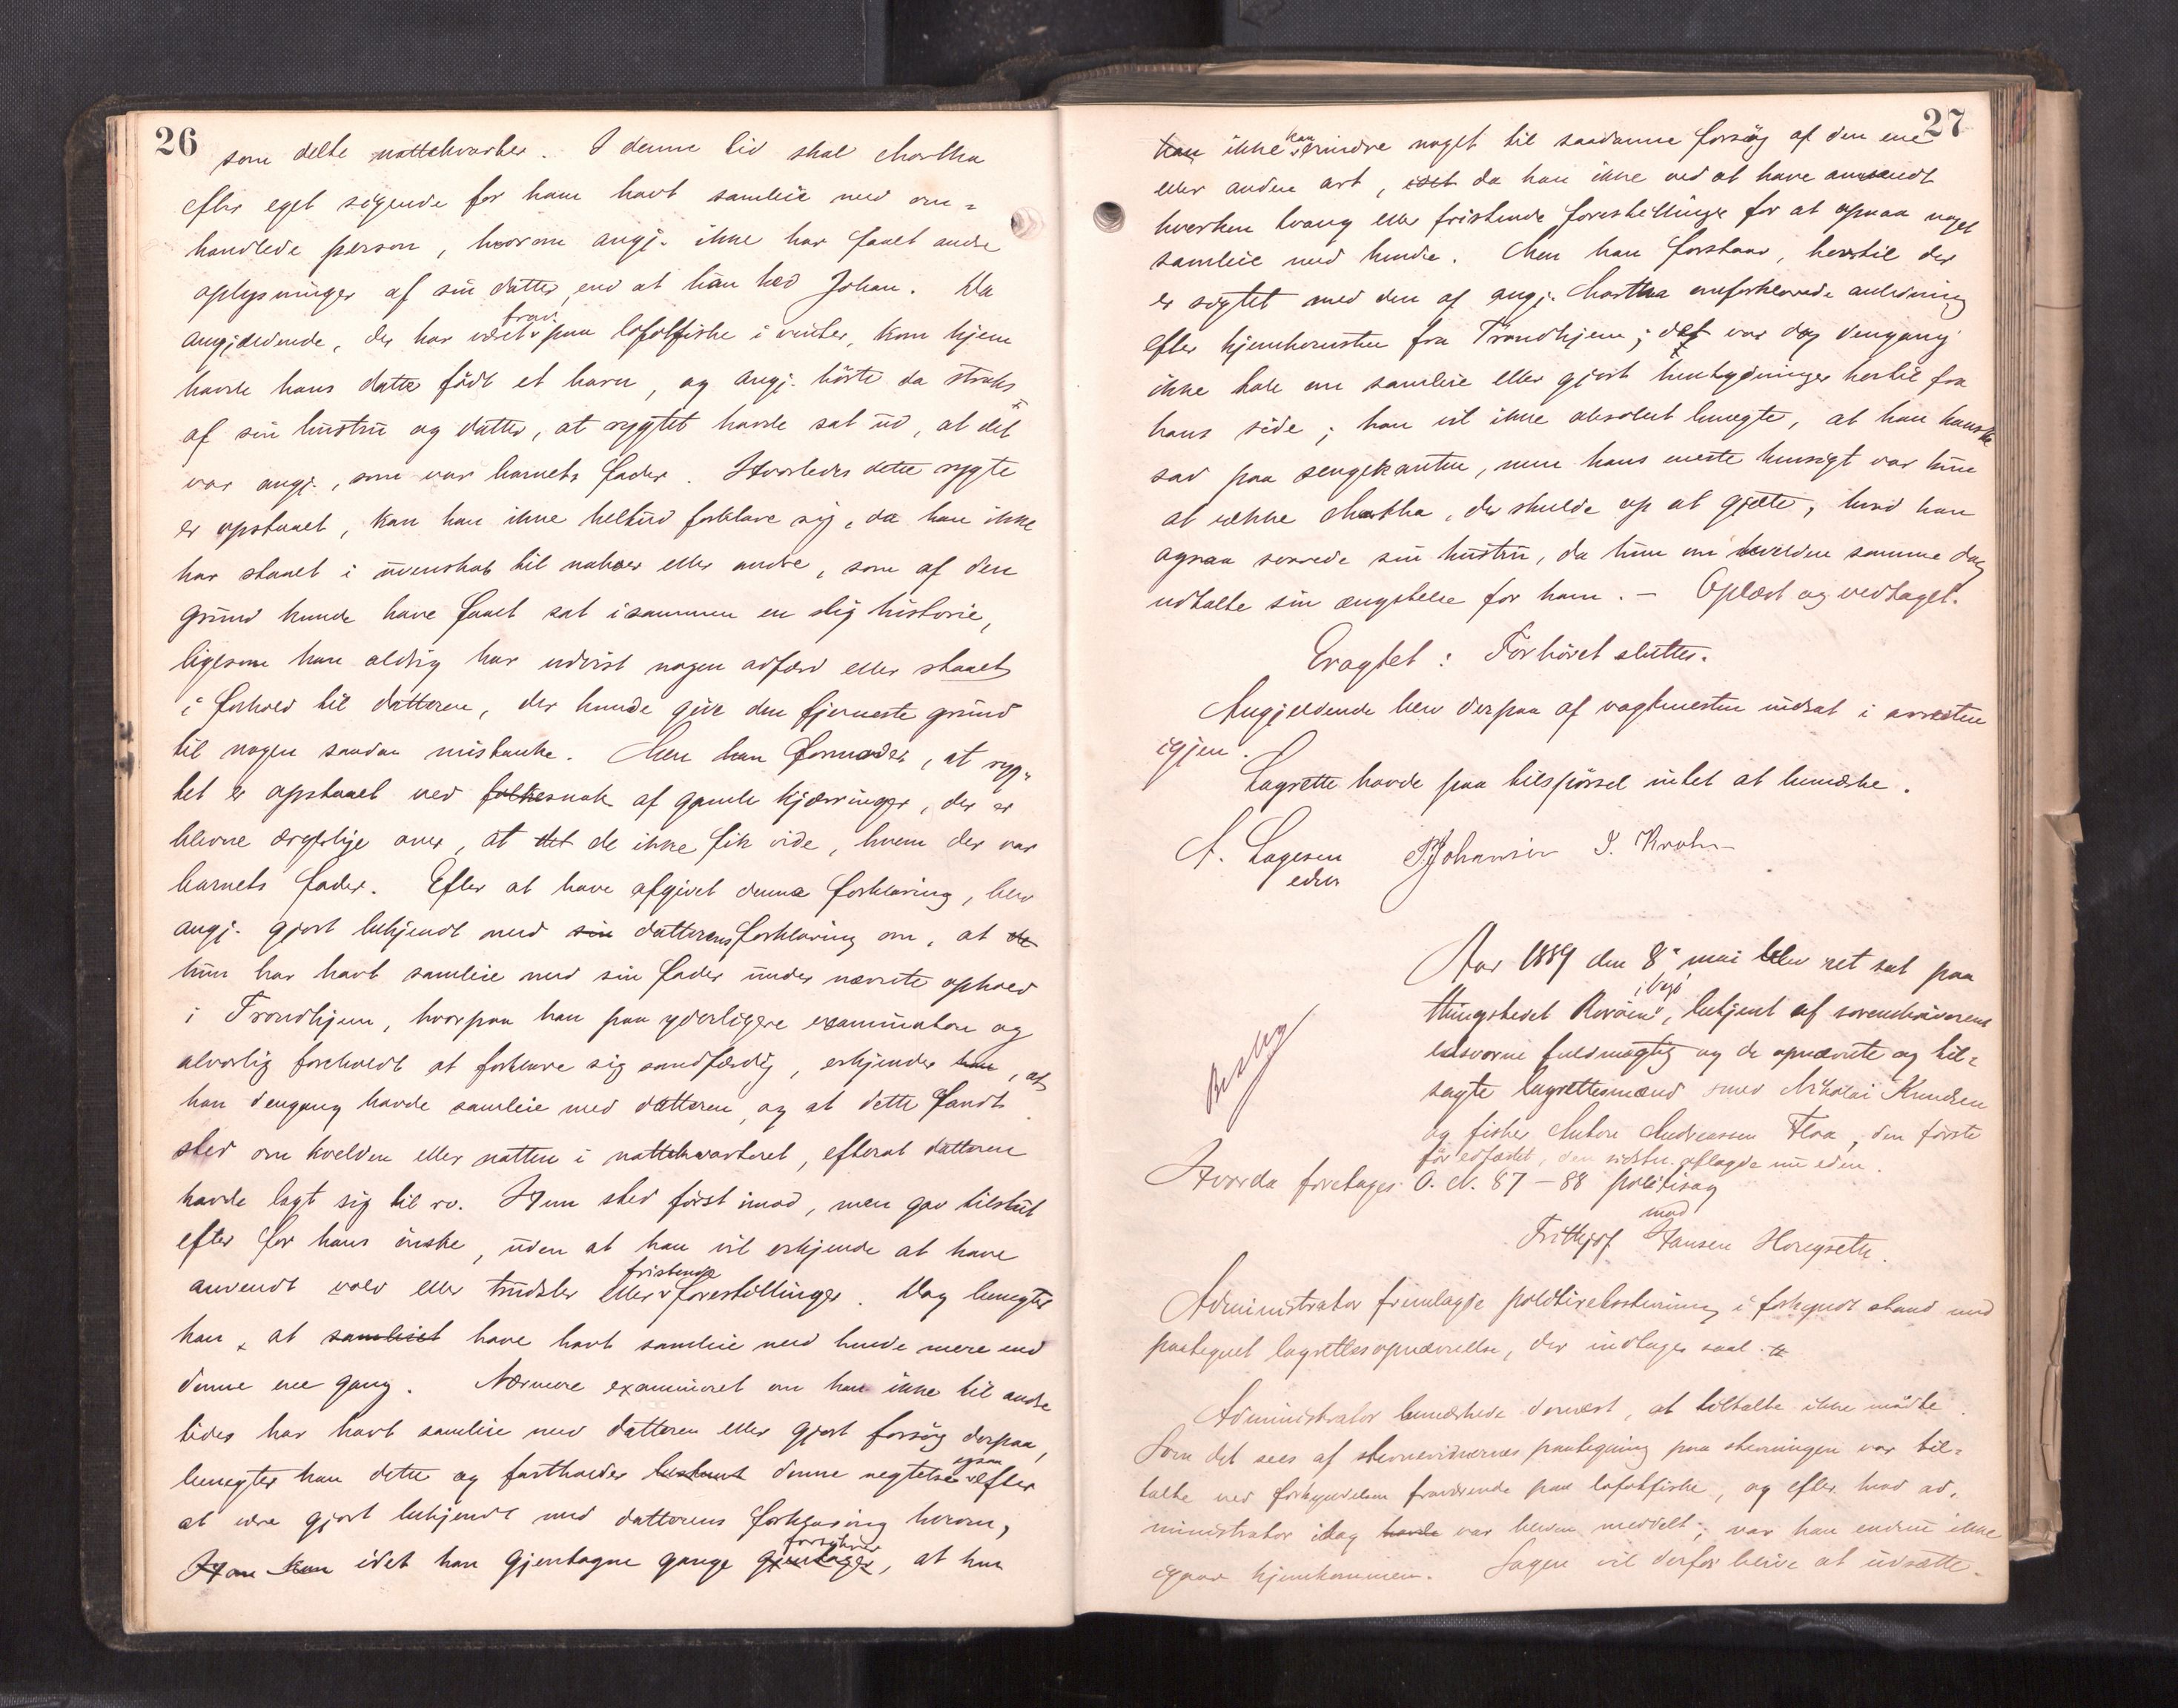 26
som delte nattekvarter. I denne tid skal Martha
efter eget sigende for ham havt samleie med om-
handlede person, hvorom angj. ikke har faaet andre
oplysninger af sin datter, end at han hed Johan. Da
angjældende, der har været fra v paa lofotfiske i vinter, kom hjem
havde hans datter födt et barn, og angj. hörte da straks
af sin hustru og datter, at rygtet havde sat ud, at det
var angj., som var barnets fader. Hvorledes dette rygte
er opstaaet, kan han ikke heltud forklare sig, da han ikke
har staaet i uvenskab til naboer eller andre, som af den
grund kunde have faaet sat isammen en slig historie,
ligesom han aldrig har udvist nogen adfærd eller staaet
i forhold til datteren, der kunde give den fjerneste grund
til nogen saadan mistanke. Men han formoder, at ryg-
tet er opstaaet ved folkesnak af gamle kjærringer, der er
blevne ærgerlige over, at det de ikke fik vide, hvem der var
barnets fader. Efter at have afgivet denne forklaring, blev
angj. gjort bekjendt med sin datterens forklaring om, at de
hun har havt samleie med sin fader under nævnte ophold
i Trondhjem, hvorpaa han paa yderligere examination og
alvorlig foreholdt at forklare sig sandfærdig, erkjender han, at
han dengang havde samleie med datteren, og at dette fandt
sted om kvelden eller natten i nattekvarteret, efterat datteren
havde lagt sig til ro. Hun sted först imod, men gav tilslut
efter for hans önske, uden at han vil erkjende at have
anvendt vold eller trudsler eller fristende forestillinger. Dog benegter
han, at samleiet have havt samleie med hende mere end
denne ene gang. Nærmere examineret om han ikke til andre
tider har havt samleie med datteren eller gjort forsög derpaa,
benegter han dette og fastholder bestemt denne negtelse ogsaa efter
at være gjort bekjendt med datterens forklaring herom,
Han kan idet han gjentagne gange gjentager forsikrer, at han
27
kan ikke kan erindre noget til saadanne forsög af den ene
eller anden art, idet da han ikke ved at have anvendt
hverken tvang eller fristende forestillinger for at opnaa noget
samleie med hende. Men han forstaar, hvortil der
er sigtet med den af angj. Martha omforklarede anledning
efter hjemkomsten fra Trondhjem; det var dog dengang
ikke tale om samleie eller gjort hentydninger hertil fra
hans side; han vil ikke absolut benegte, at han kanske
sad paa sengekanten, men hans eneste hensigt var kun
at vække Martha, der skulde op at gjæte, hvad han
ogsaa svarede sin hustru, da hun om kvelden samme dag
udtalte sin ængstelse for ham. – Oplæst og vedtaget.
Eragtet: Forhöret sluttes.
Angjeldende blev derpaa af vagtmesteren indsat i arresten
igjen.
Lagrette havde paa tilspörsel intet at bemærke.
A. Lagesen PJohansen I. Krohn
edsv
Aar 1889 den 8de mai blev ret sat paa
thingstedet Roröen i Vejö, betjent af sorenskriverens
edsvorne fuldmægtig og de opnævnte og til-
sagte lagrettesmænd smed Nikolai Knudsen
og fisker Anton Andreassen Floa, den förste
för edfæstet, den sidstn. aflagde nu eden.
Beslag
Hvorda foretages O. N. 87–88 politisag
mod
Frithjof Hansen Horgseth.
Administrator fremlagde politiretsstevning i forkyndt stand med
paategnet lagrettesopnævnelse, der indtages saal. tr
Administrator bemærkede dernæst, at tiltalte ikke mödte.
Som det sees af stevnevidnernes paategning paa stevningen var til-
talte ved forkyndelsen fraværende paa lofotfiske, og efter hvad ad-
ministrator idag havde var bleven meddelt, var han endnu ikke
igaar hjemkommen. Sagen vil derfor blive at udsætte.